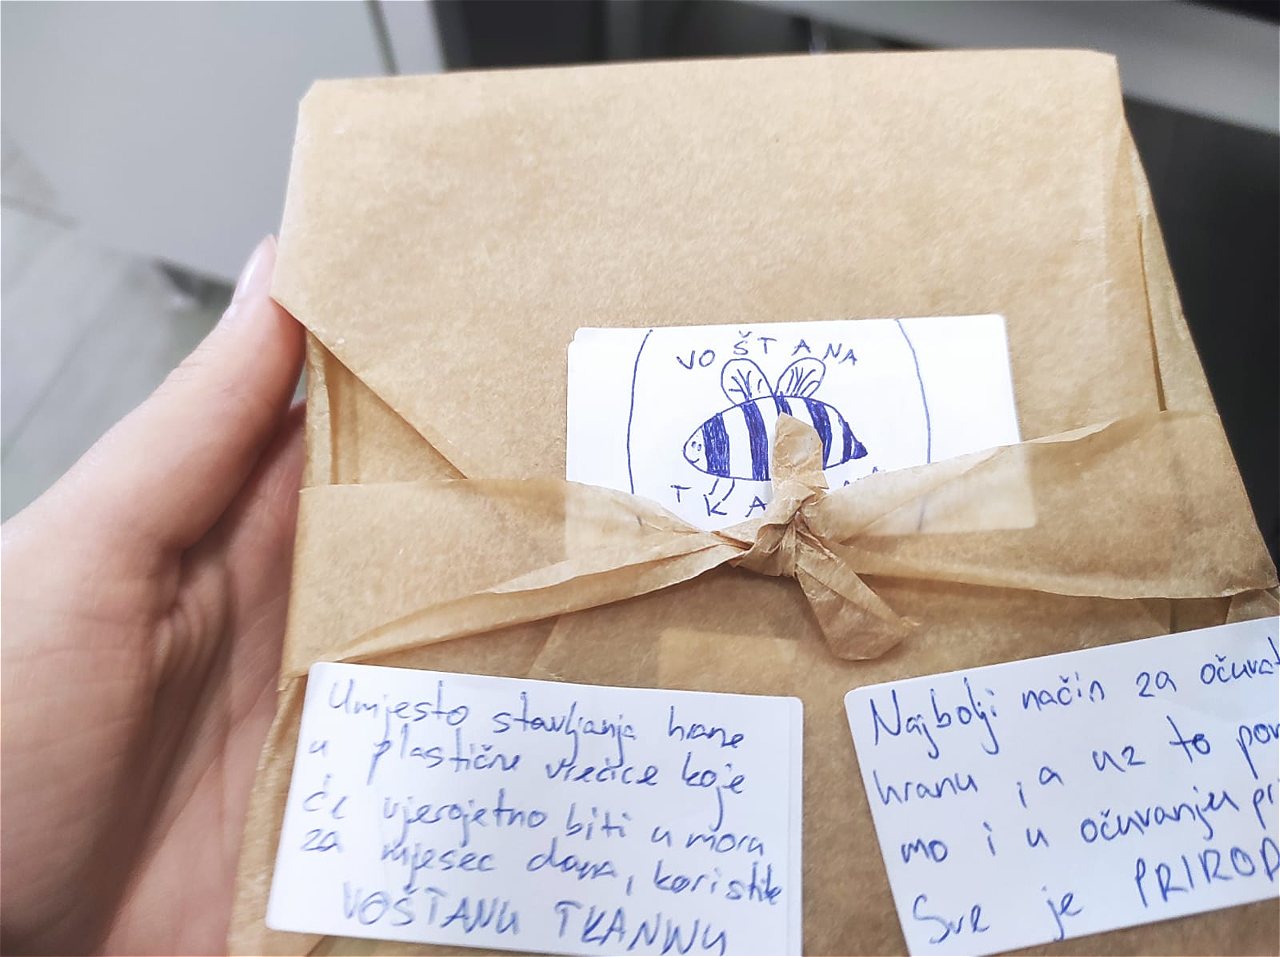 VOŠTANA
TKA
Umjesto stavljanja hrane
u plastične vrećice koje
će vjerojetno biti u moru
za mjesec dana, koristite
VOŠTANU TKANINU
Najbolji način za očuvat
hranu, a uz to pom
mo i u očuvanju pr
Sve je PRIROD